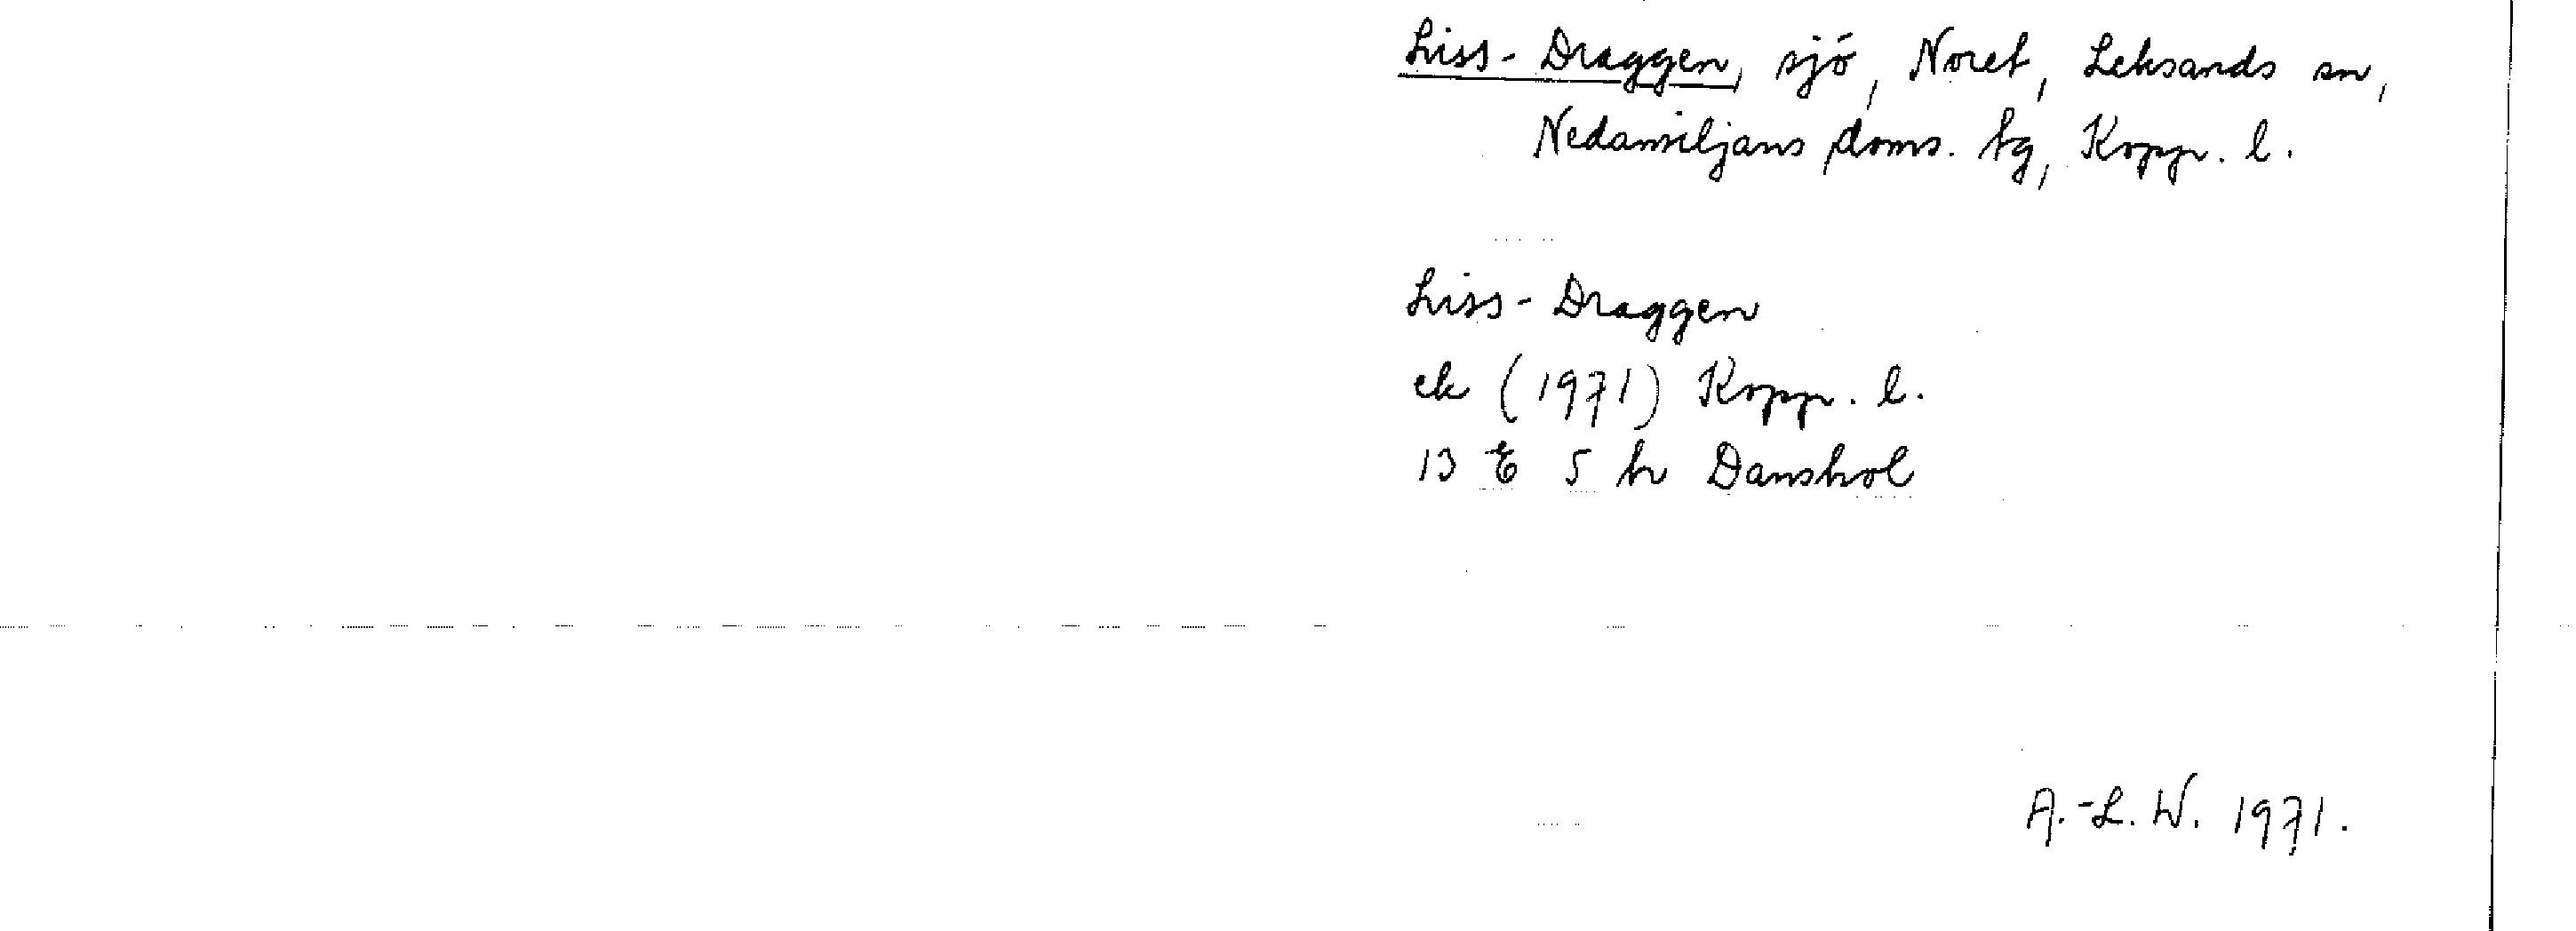 Liss-Draggen, sjö, Noret, Leksands sn,
Nedansiljans doms. tg, Kopp. l.
Liss-Draggen
ek (1971) Kopp. l.
13 E 5 h Danshol
A.-L. W. 1971.